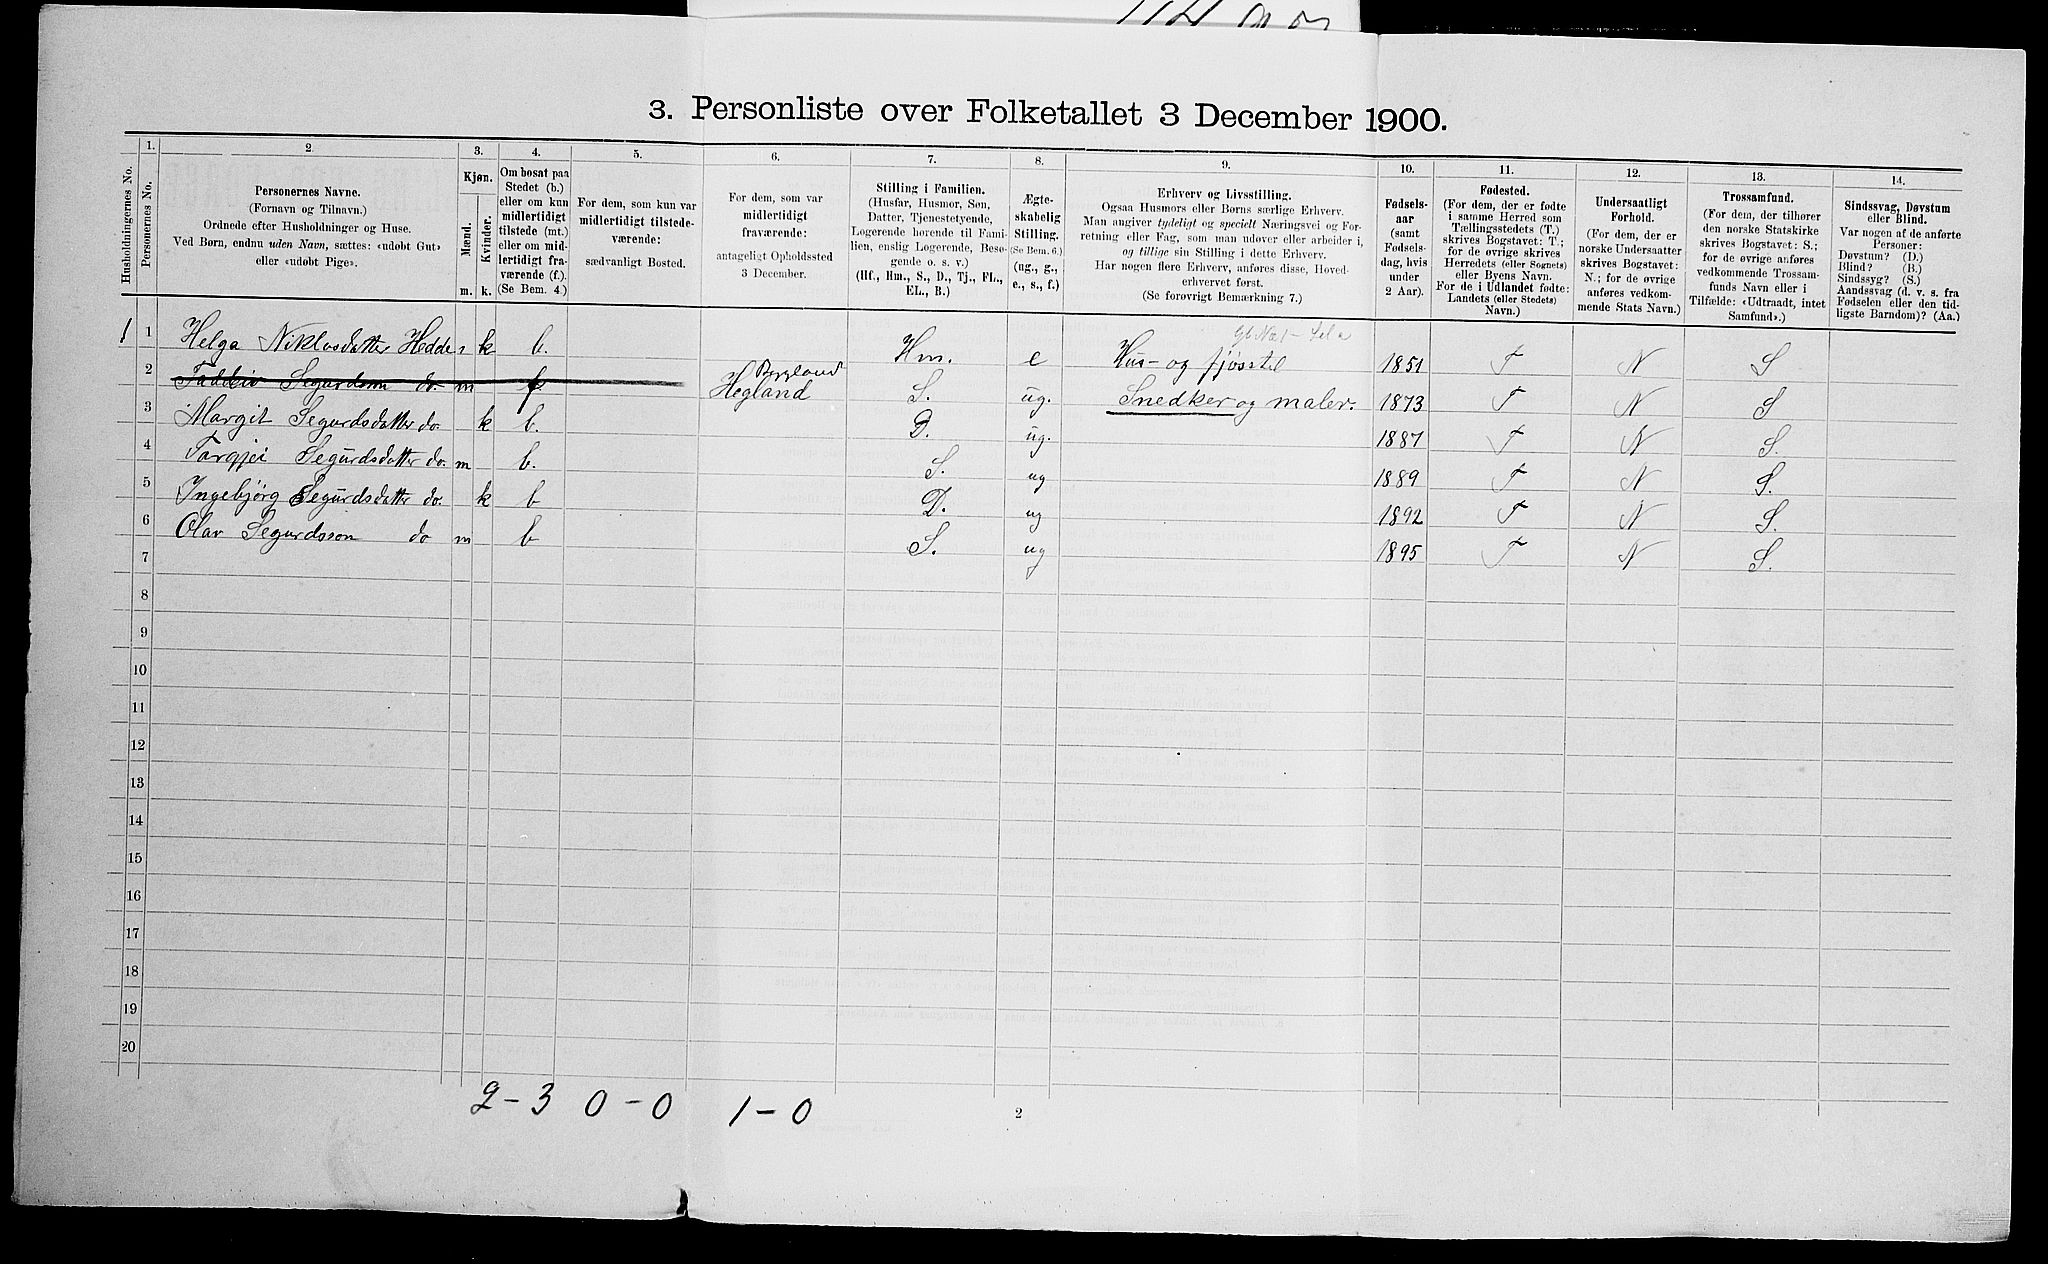 3. Personliste over Folketallet 3 December 1900.
Husholdningernes No.
1. Personernes No.
2. Personernes Navne. (Fornavn og Tilnavn.) Ordnede efter Husholdninger og Huse. Ved Børn, endnu uden Navn, sættes: «udøbt Gut» eller «udøbt Pige».
3. Kjøn. Mænd. m. Kvinder. k.
4. Om bosat paa Stedet (b.) eller om kun midlertidigt tilstede (mt.) eller om midlertidigt fraværende (f.). (Se Bem. 4.)
5. For dem, som kun var midlertidigt tilstedeværende: sædvanligt Bosted.
6. For dem, som var midlertidigt fraværende: antageligt Opholdssted 3 December.
7. Stilling i Familien. (Husfar, Husmor, Søn, Datter, Tjenestetyende, Logerende hørende til Familien, enslig Logerende, Besøgende o. s. v.) (Hf., Hm., S., D., Tj., FL., EL., B.)
8. Ægteskabelig Stilling. (Se Bem. 6.) (ug., g., e., s., f.)
9. Erhverv og Livsstilling. Ogsaa Husmors eller Børns særlige Erhverv. Man angiver tydeligt og specielt Næringsvei og Forretning eller Fag, som man udøver eller arbeider i, og tillige sin Stilling i dette Erhverv. Har nogen flere Erhverv, anføres disse, Hovederhvervet først. (Se forøvrigt Bemærkning 7.)
10. Fødselsaar (samt Fødselsdag, hvis under 2 Aar).
11. Fødested. (For dem, der er fødte i samme Herred som Tællingsstedets (T.) skrives Bogstavet: T.; for de øvrige skrives Herredets (eller Sognets) eller Byens Navn. For de i Udlandet fødte: Landets (eller Stedets) Navn.)
12. Undersaatligt Forhold. (For dem, der er norske Undersaatter skrives Bogstavet: N.; for de øvrige anføres vedkommende Stats Navn.)
13. Trossamfund. (For dem, der tilhører den norske Statskirke skrives Bogstavet: S.; for de øvrige anføres vedkommende Trossamfunds Navn eller i Tilfælde: «Udtraadt, intet Samfund».)
14. Sindssvag, Døvstum eller Blind. Var nogen af de anførte Personer: Døvstum? (D.) Blind? (B.) Sindssyg? (S.) Aandssvag (d. v. s. fra Fødselen eller den tidligste Barndom)? (Aa.)
1 1 Helga Niklosdatter Hedde k b. Hm. e Hus- og fjøsstel 1851 T N S
2 Segurdson do m f Hegland Bergland S. ug. Snedker og maler. 1873 T N S
3 Margit Segurdsdatter do. k b. D. ug. 1887 T N S.
4 Targjei Segurdsdatter do. m b. S. ug 1889 T N S.
5 Ingebjörg Segurdsdatter do. k b D. ug 1892 T N S.
6 Olav Segurdsson do m b S. ug 1895 T N S.
7
8
9
10
11
12
13
14
15
16
17
18
19
20
2 - 3 0 - 0 1 - 0
2